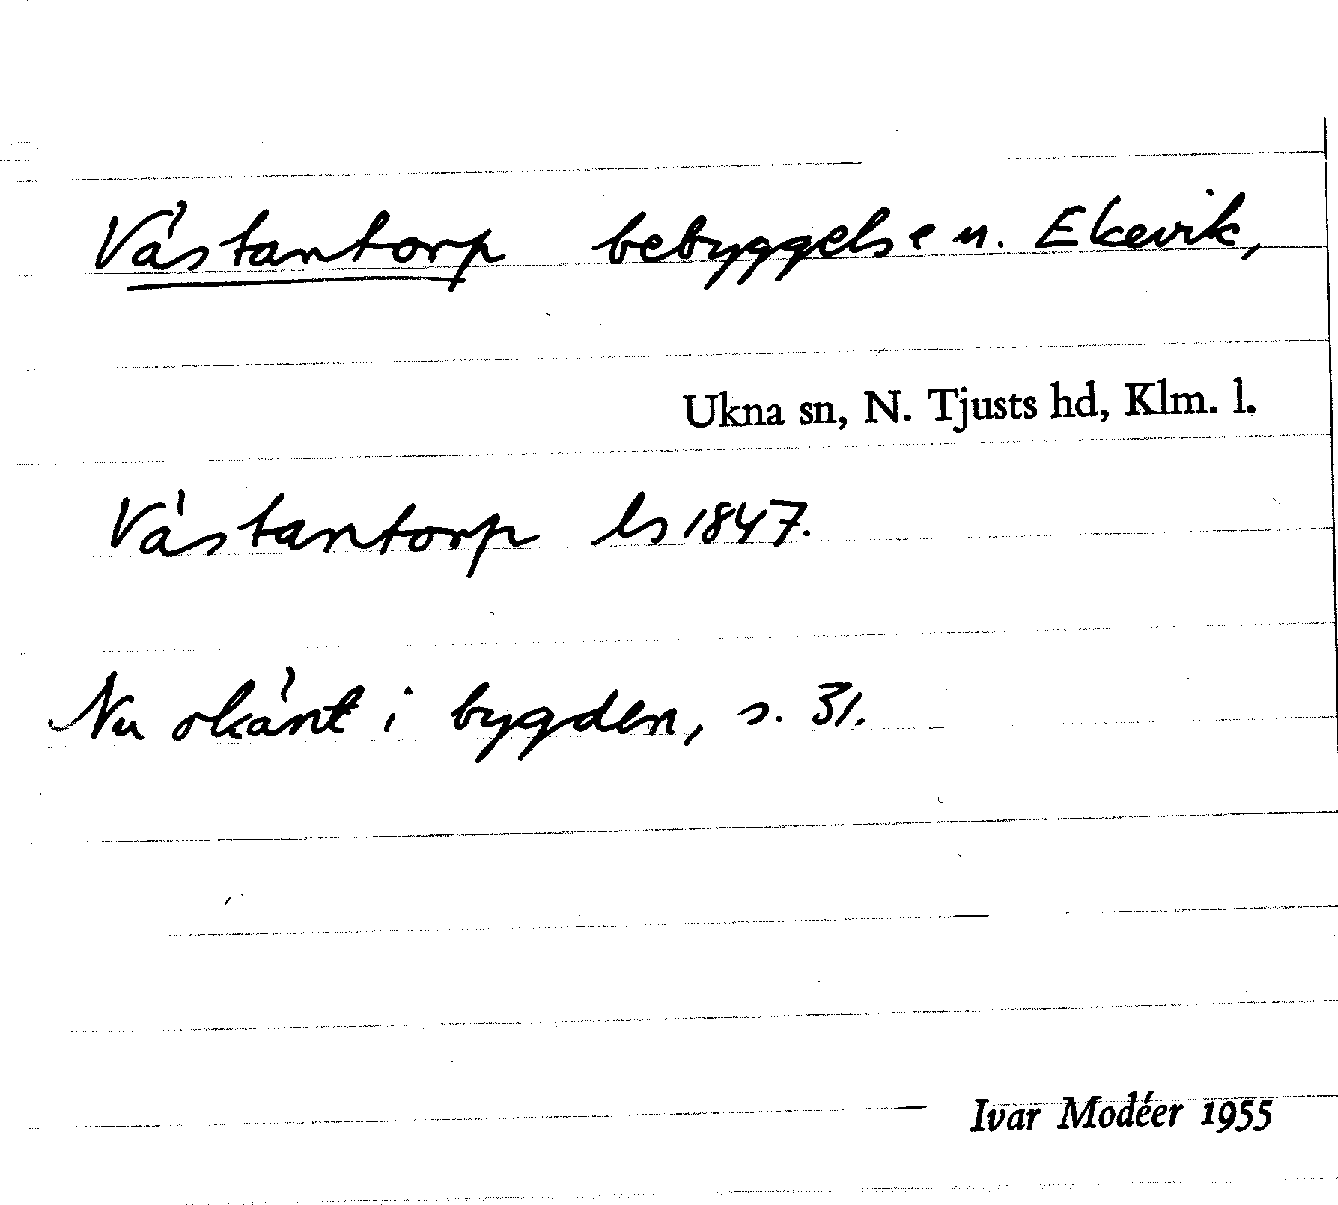 Västantorp bebyggelse u. Ekevik,
Ukna sn, N. Tjusts hd, Klm. l.
Västantorp ls 1847.
Nu okänt i bygden, s. 31.
Ivar Modéer 1955